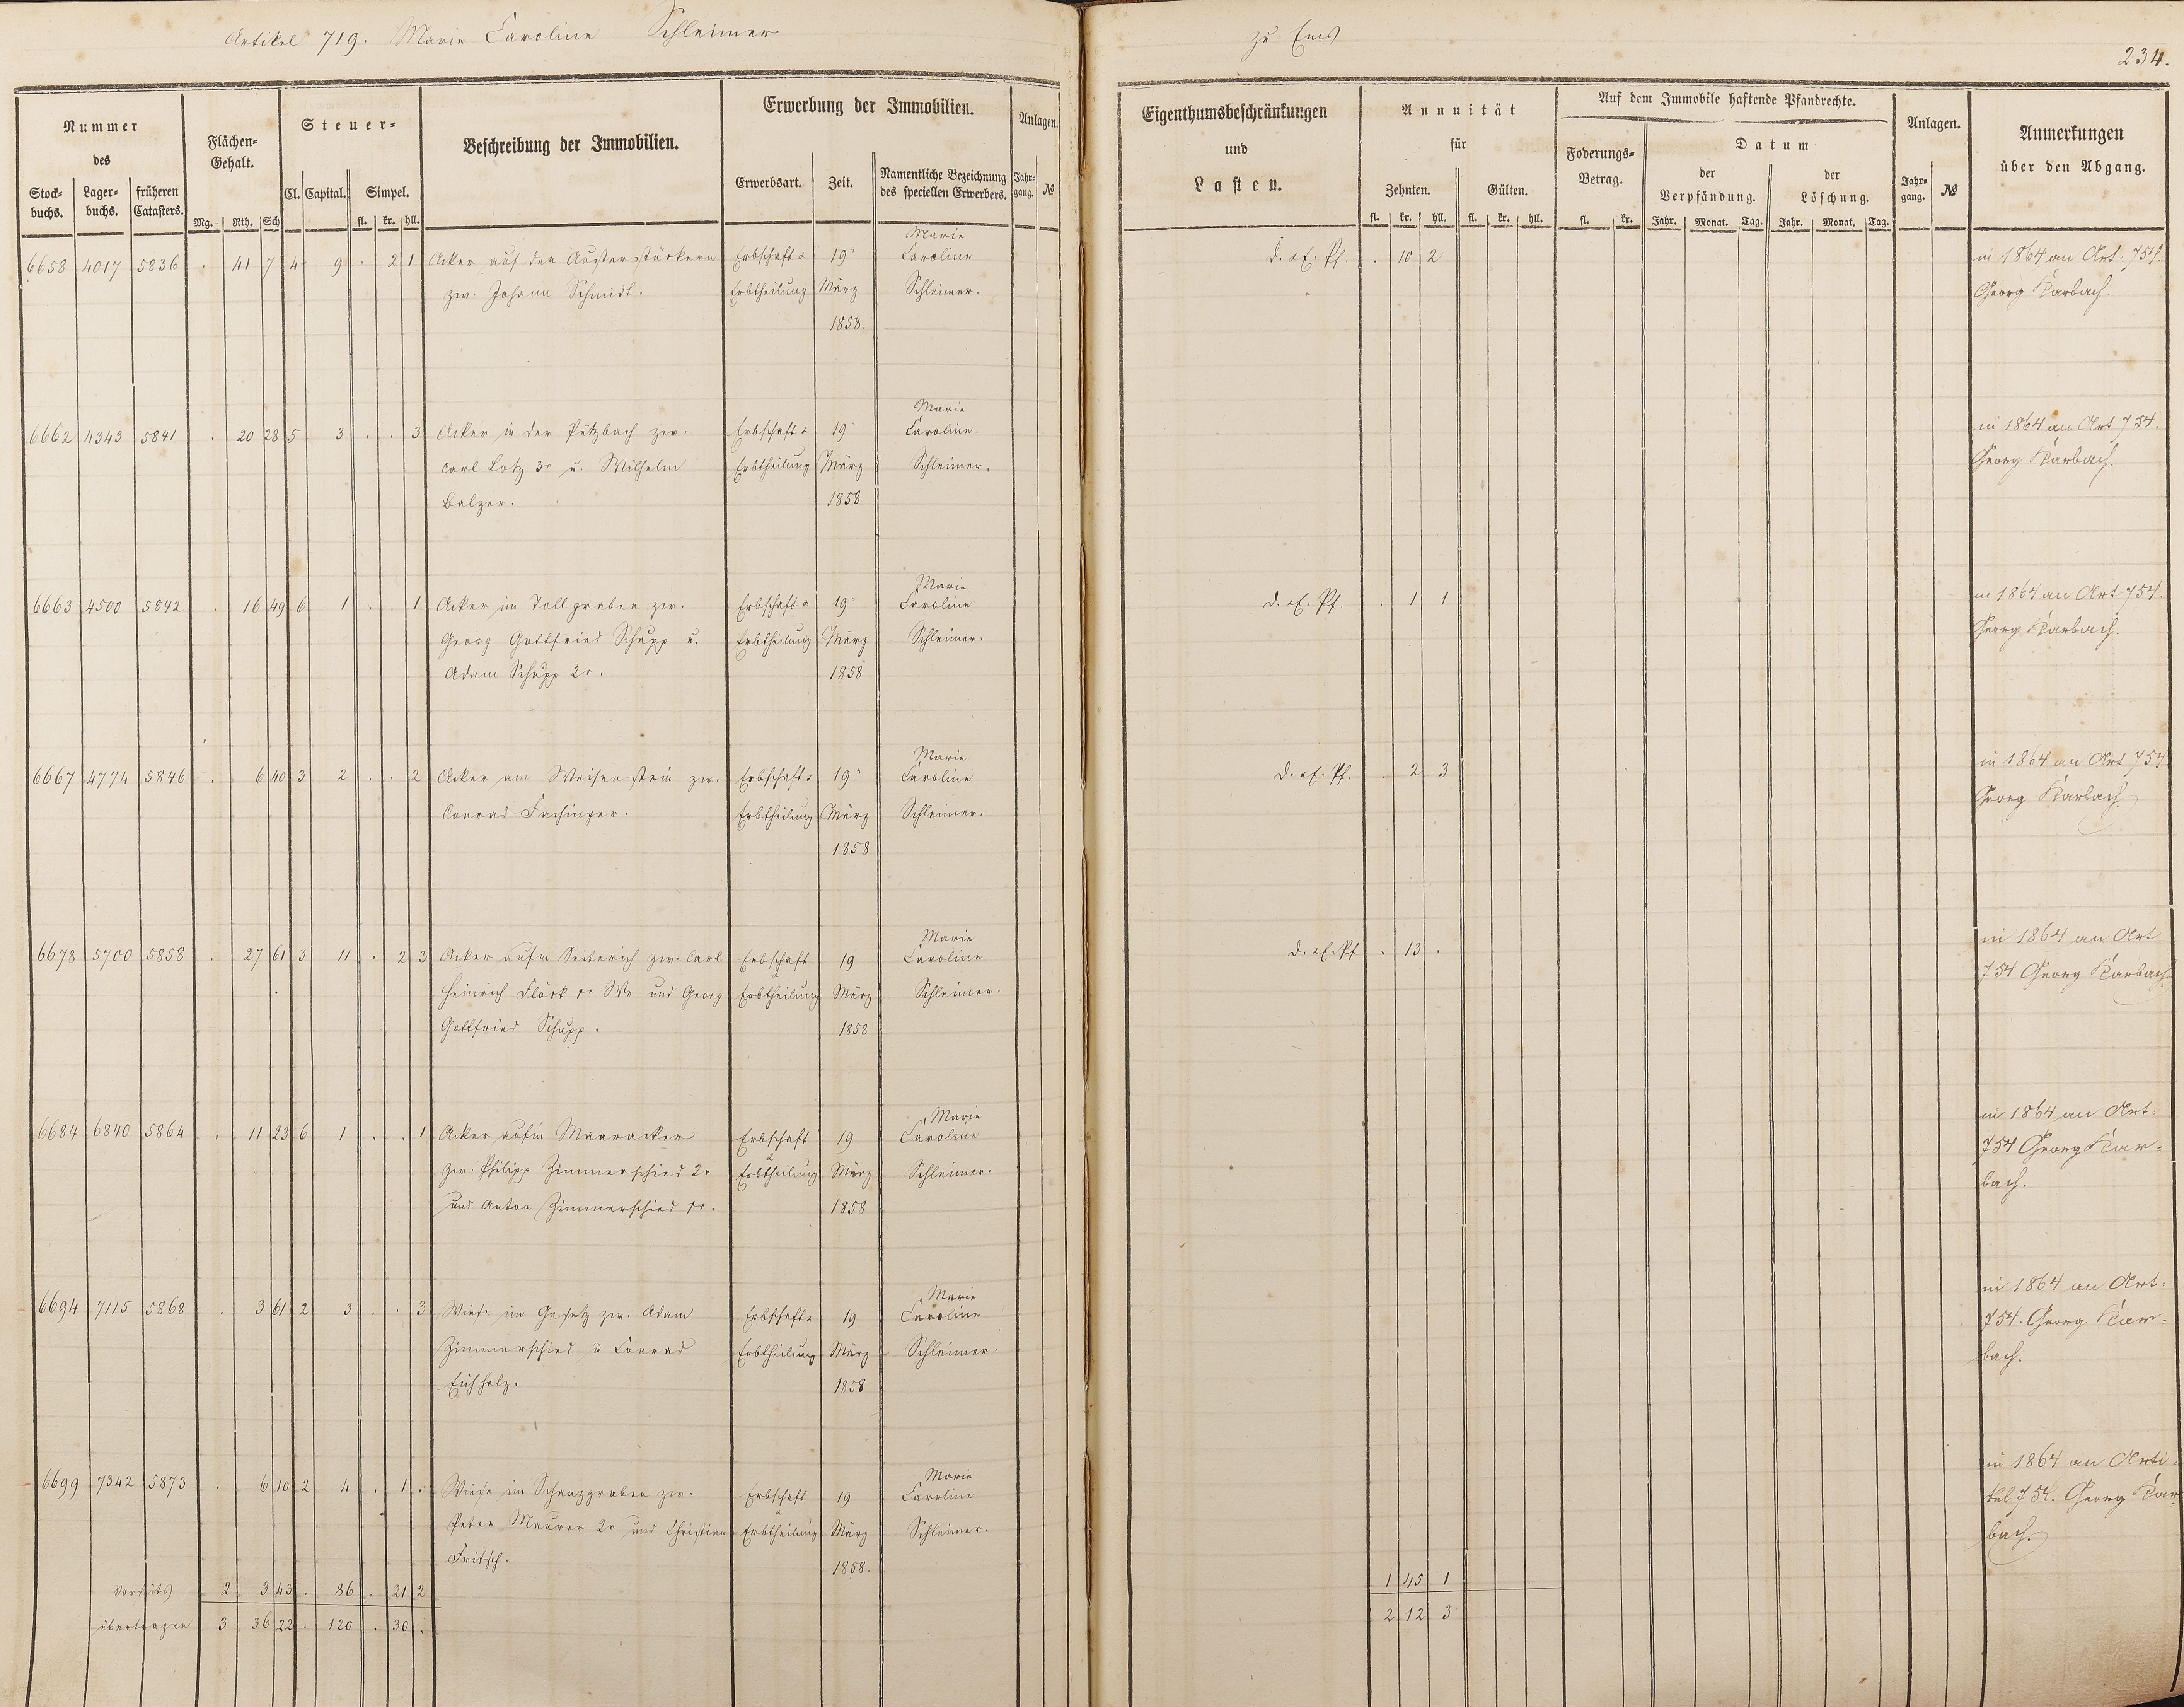 Artikel 719. Marie Caroline Schleimer
zu Ems
234.
Nummer
des
Stock-
buchs.
Lager-
buchs.
früheren
Catasters.
Flächen-
Gehalt.
Mg. Rth. Sch
Steuer-
Cl. Capital. Simpel.
fl. kr. hll.
Beschreibung der Immobilien.
Erwerbung der Immobilien.
Erwerbsart. Zeit.
Namentliche Bezeichnung
des speciellen Erwerbers.
Anlagen.
Jahr-
gang. №
Eigenthumsbeschränkungen
und
Lasten.
Annuität
für
Zehnten. Gülten.
fl. kr. hll. fl. kr. hll.
Auf dem Immobile haftende Pfandrechte.
Foderungs-
Betrag.
fl. kr.
Datum
der
Verpfändung.
der
Löschung.
Jahr. Monat. Tag. Jahr. Monat. Tag.
Anlagen.
Jahr-
gang. №
Anmerkungen
über den Abgang.
Marie
6658 4017 5836 . 41 7 4 9 . 2 1 Acker auf den Erbschaft & 19 Caroline d. x f. Pf. . 10 2 in 1864 an Art. 754.
zw. Johann Schmidt. Erbtheilung März Schleimer. Georg Karbach.
1858.
Marie
6662 4343 5841 . 20 28 5 3 . . 3 Acker in der Pützbach zw. Erbschaft & 19 Caroline in 1864 an Art 754.
Carl Lotz 3r u. Wilhelm Erbtheilung März Schleimer. Georg Karbach.
Balzer. 1858
Marie
6663 4500 5842 . 16 49 6 1 . . 1 Acker im Tollgraben zw. Erbschaft & 19 Caroline d. x f. Pf. . 1 1 in 1864 an Art 754.
Georg Gottfried Schupp u. Erbtheilung März Schleimer. Georg Karbach.
Adam Schupp 2r. 1858
Marie
6667 4774 5846 . 6 40 3 2 . . 2 Acker am Weisenstein zw. Erbschaft & 19 Caroline d. x f. Pf. . 2 3 in 1864 an Art 754
Conrad Fachinger. Erbtheilung März Schleimer. Georg Karbach
1858
Marie
6678 5700 5858 . 27 61 3 11 . 2 3 Acker aufm Seiterich zw. Carl Erbschaft 19 Caroline d. x f. Pf . 13 . in 1864 an Art
Heinrich Flöck 1r We und Georg & Erbtheilung März Schleimer. 754 Georg Karbach
Gottfried Schupp. 1858
Marie
6684 6840 5864 . 11 23 6 1 . . 1 Acker aufm Maaracker Erbschaft 19 Caroline in 1864 an Art.
zw. Philipp Zimmerschied 2r & Erbtheilung März Schleimer. 754 Georg Kar-
und Anton Zimmerschied 1r. 1858 bach.
Marie
6694 7115 5868 . 3 61 2 3 . . 3 Wiese im Gesetz zw. Adam Erbschaft & 19 Caroline in 1864 an Art.
Zimmerschied u Conrad Erbtheilung März Schleimer. 754. Georg Kar-
Eichholz. 1858 bach.
Marie
6699 7342 5873 . 6 10 2 4 . 1 . Wiese im Schanzgraben zw. Erbschaft 19 Caroline in 1864 an Arti-
Peter Maurer 2r und Christian & Erbtheilung März Schleimer. kel 754. Georg Kar-
Fritsch. 1858. bach.
Vorseits 2 3 43 . 86 . 21 2 1 45 1
übertragen 3 36 22 . 120 . 30 . 2 12 3